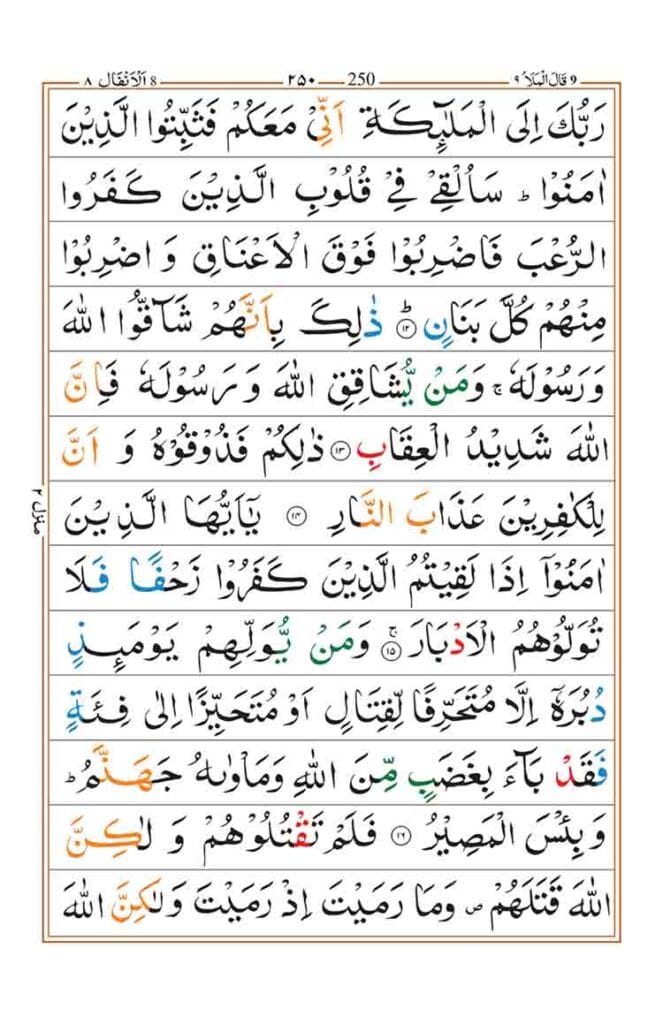 9 قَالَ الْمَلَاُ ٩ 250 ٢٥٠ 8 اَلْاَنْفَال ٨
رَبُّكَ اِلَى الْمَلٰٓئِكَةِ اَنِّیْ مَعَكُمْ فَثَبِّتُوا الَّذِیْنَ
اٰمَنُوْا ؕ سَاُلْقِیْ فِیْ قُلُوْبِ الَّذِیْنَ كَفَرُوا
الرُّعْبَ فَاضْرِبُوْا فَوْقَ الْاَعْنَاقِ وَ اضْرِبُوْا
مِنْهُمْ كُلَّ بَنَانٍ ؕ ۝۱۲ ذٰلِكَ بِاَنَّهُمْ شَآقُّوا اللّٰهَ
وَ رَسُوْلَهٗ ۚ وَ مَنْ یُّشَاقِقِ اللّٰهَ وَ رَسُوْلَهٗ فَاِنَّ
اللّٰهَ شَدِیْدُ الْعِقَابِ ۝۱۳ ذٰلِكُمْ فَذُوْقُوْهُ وَ اَنَّ
لِلْكٰفِرِیْنَ عَذَابَ النَّارِ ۝۱۴ یٰۤاَیُّهَا الَّذِیْنَ
اٰمَنُوْۤا اِذَا لَقِیْتُمُ الَّذِیْنَ كَفَرُوْا زَحْفًا فَلَا
تُوَلُّوْهُمُ الْاَدْبَارَ ۚ ۝۱۵ وَ مَنْ یُّوَلِّهِمْ یَوْمَىِٕذٍ
دُبُرَهٗۤ اِلَّا مُتَحَرِّفًا لِّقِتَالٍ اَوْ مُتَحَیِّزًا اِلٰی فِئَةٍ
فَقَدْ بَآءَ بِغَضَبٍ مِّنَ اللّٰهِ وَ مَاْوٰىهُ جَهَنَّمُ ؕ
وَ بِئْسَ الْمَصِیْرُ ۝۱۶ فَلَمْ تَقْتُلُوْهُمْ وَ لٰكِنَّ
اللّٰهَ قَتَلَهُمْ ۪ وَ مَا رَمَیْتَ اِذْ رَمَیْتَ وَ لٰكِنَّ اللّٰهَ
منزل ٢